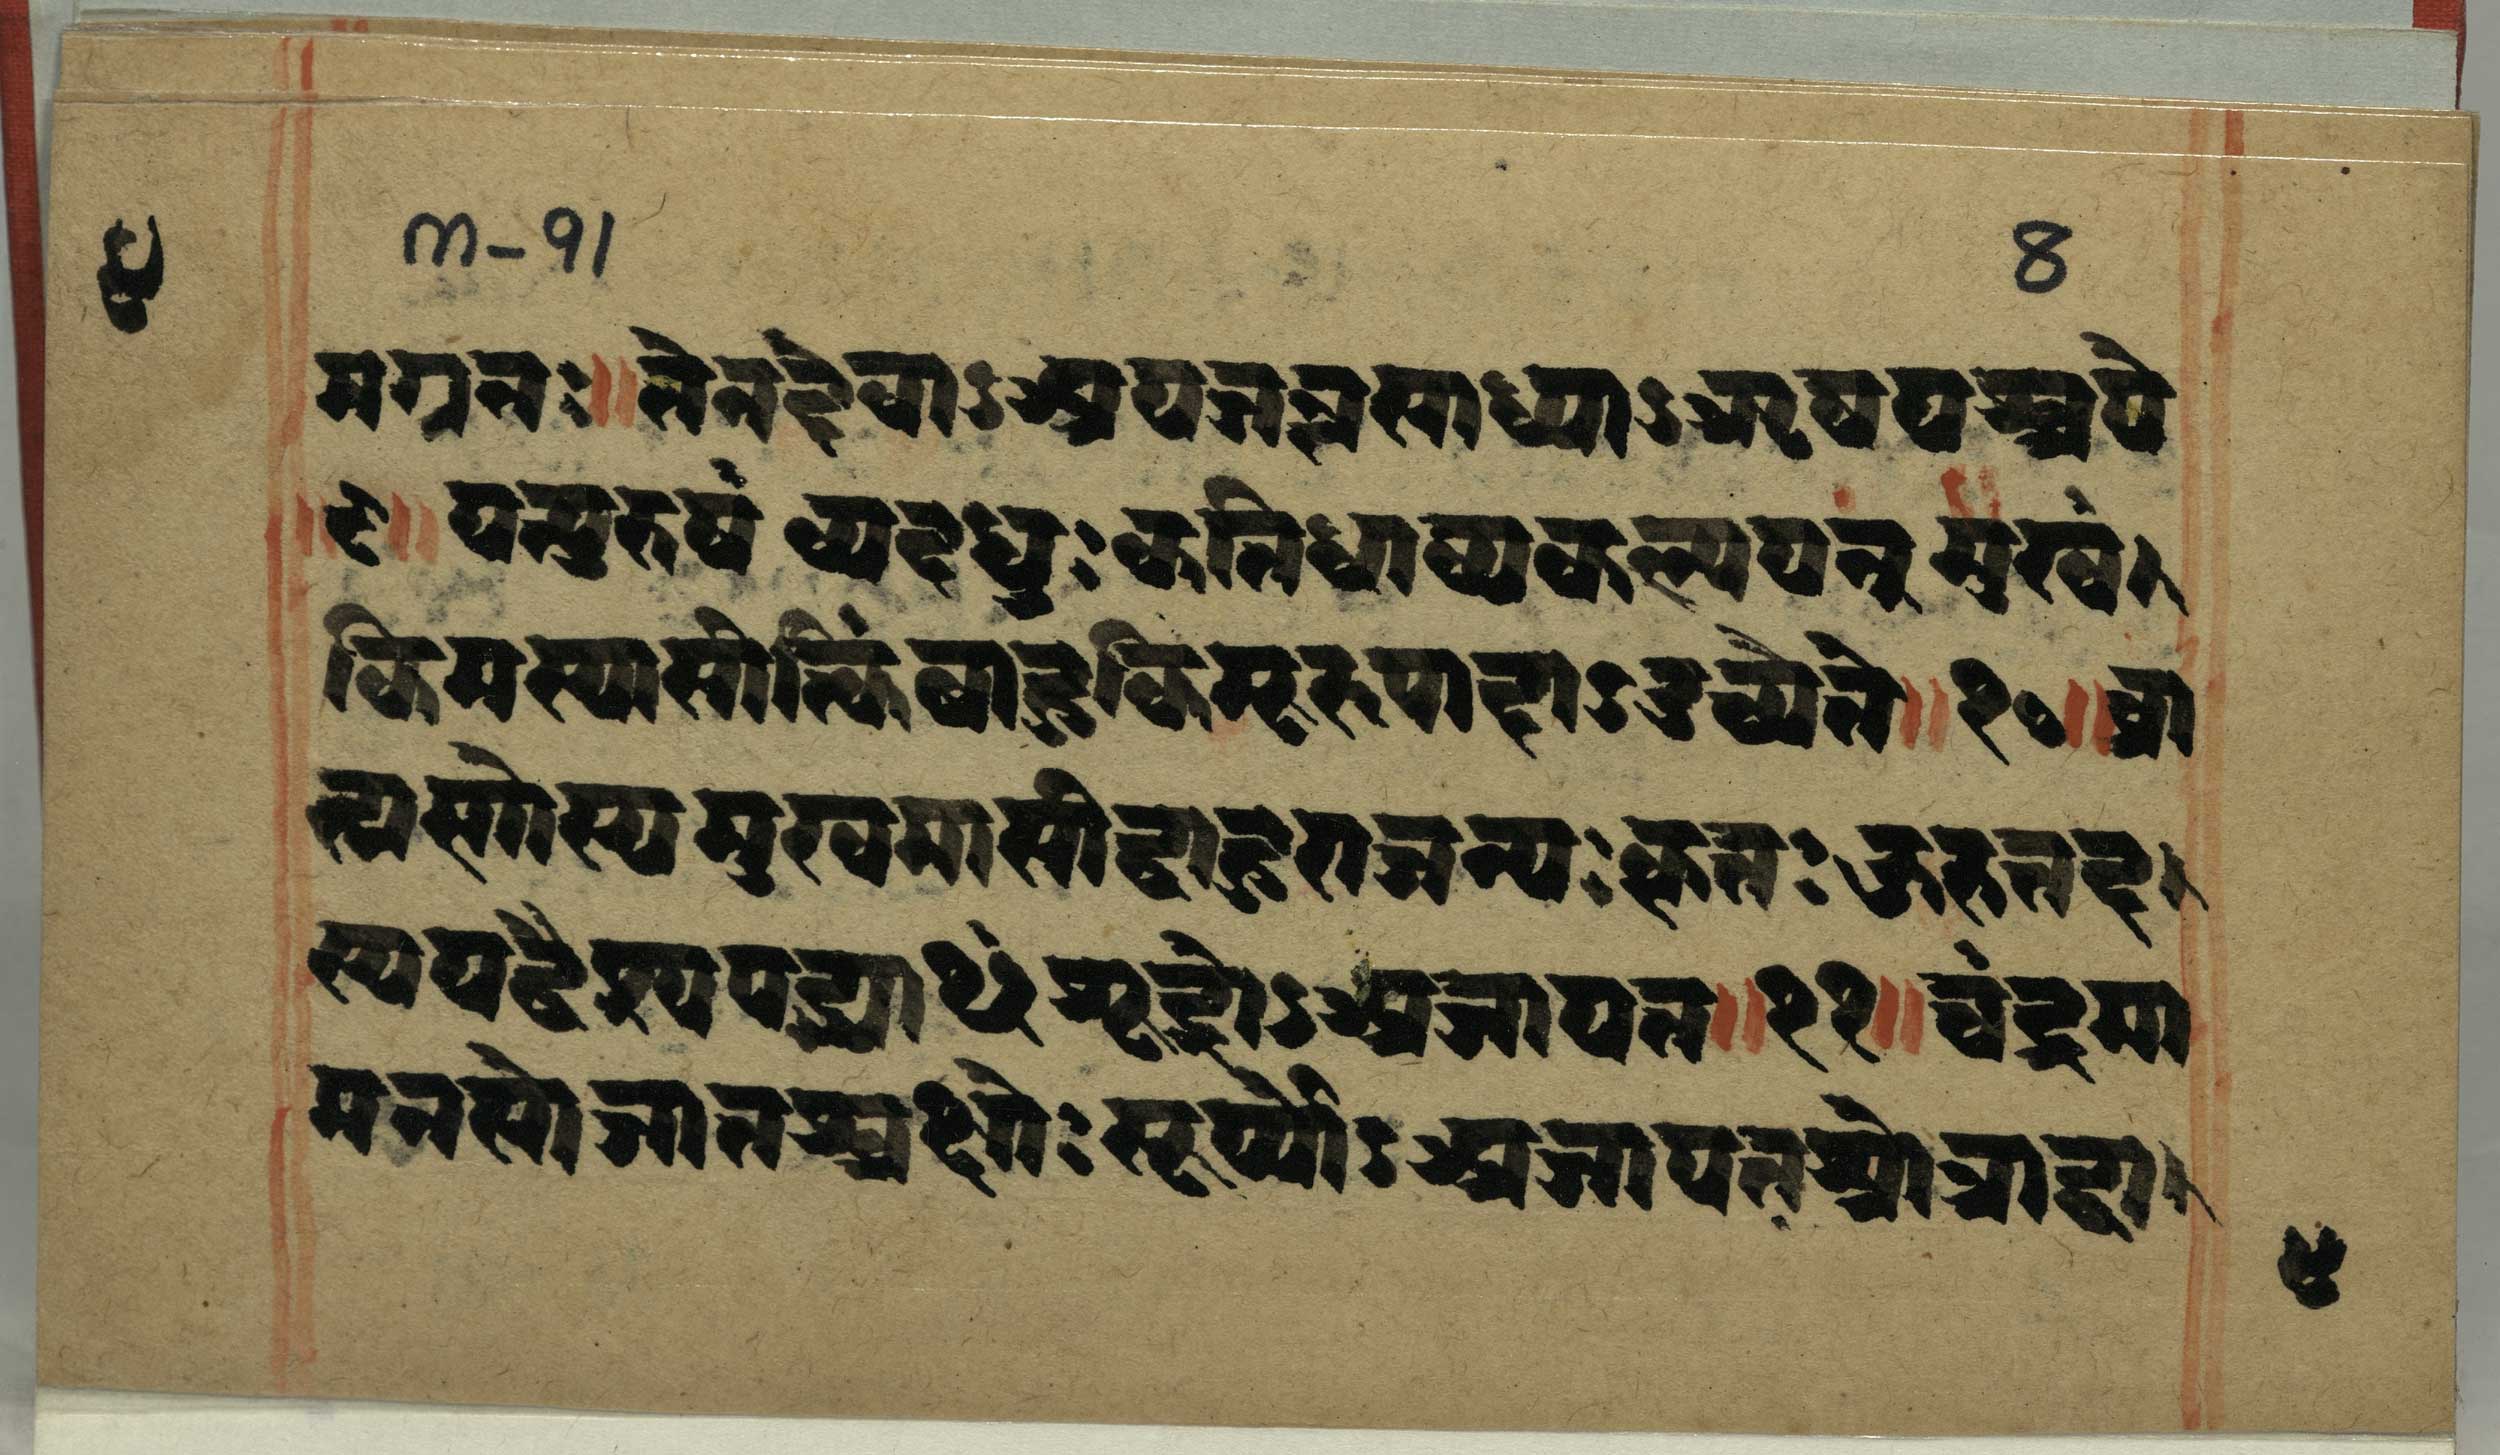 m-91 8
५
मग्रतः॥तेनदेवाऽअयजन्तसाध्याऽऋषयश्चये
॥९॥यत्पुरुषं व्यदधुःकतिधाव्यकल्पयन् मुखं
किमस्यासीत्किंबाहूकिमूरूपादाऽउच्येते॥१०॥ब्रा
ह्मणोस्य मुखमासीद्बाहूराजन्यःकृतःऊरूतद
स्ययद्वैश्यपद्भ्याᳬशूद्रोऽअजायत॥११॥चंद्रमा
मनसोजातश्चक्षोःसूर्य्योऽअजायतश्रोत्राद्वा
५